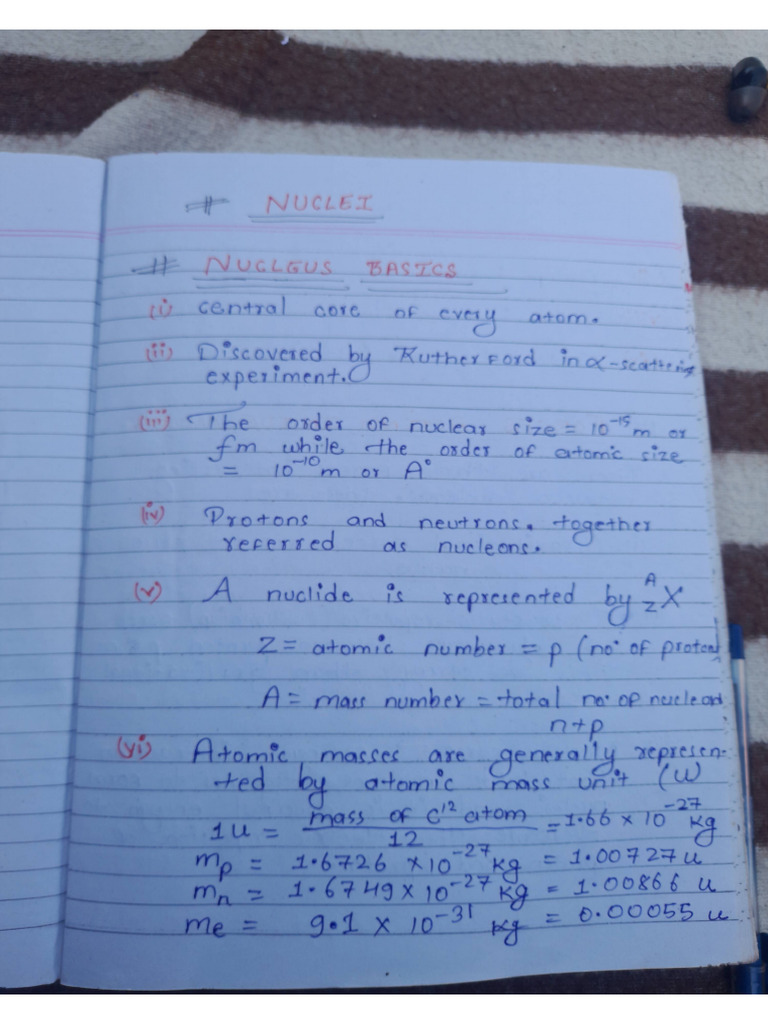 # NUCLEI
# NUCLEUS BASICS
(i) central core of every atom.
(ii) Discovered by RutherFord in α-scattering
experiment.
(iii) The order of nuclear size = 10⁻¹⁵m or
fm while the order of atomic size
= 10⁻¹⁰m or A°
(iv) Protons and neutrons. together
referred as nucleons.
(v) A nuclide is represented by ᴬ_Z X
Z = atomic number = p (no. of proton)
A = mass number = total no. of nucleons
n+p
(vi) Atomic masses are generally represen-
ted by atomic mass unit (u)
1u = mass of C¹² atom / 12 = 1.66 × 10⁻²⁷ kg
mp = 1.6726 × 10⁻²⁷ kg = 1.00727 u
mn = 1.6749 × 10⁻²⁷ kg = 1.00866 u
me = 9.1 × 10⁻³¹ kg = 0.00055 u